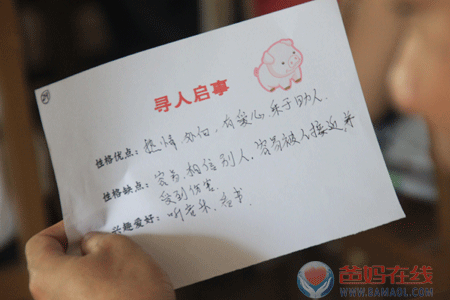 29
寻人启事
性格优点：热情 外向，有爱心，乐于助人
性格缺点：容易相信别人，容易被人接近并
受到伤害
兴趣爱好：听音乐、看书
爸妈在线
WWW.BAMAOL.COM